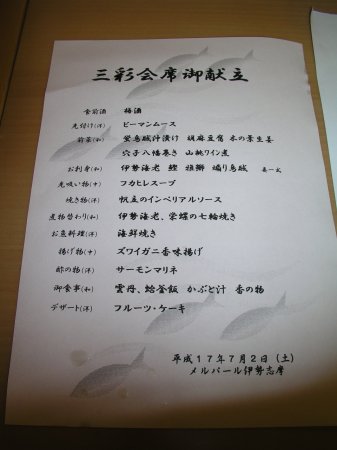 三彩会席御献立
食前酒 梅酒
先付け(洋) ピーマンムース
前菜(和) 蛍烏賊汁漬け 胡麻豆腐 木の葉生姜
穴子八幡巻き 山桃ワイン煮
お刺身(和) 伊勢海老 鰹 揚巻 烏賊 妻一式
先吸い物(中) フカヒレスープ
焼き物(洋) 帆立のインペリアルソース
煮物替わり(和) 伊勢海老、栄螺の七輪焼き
お魚料理(洋) 海鮮焼き
揚げ物(中) ズワイガニ香味揚げ
酢の物(洋) サーモンマリネ
御食事(和) 雲丹、鮑釜飯 かぶと汁 香の物
デザート(洋) フルーツ・ケーキ
平成17年7月2日(土)
メルパール伊勢志摩